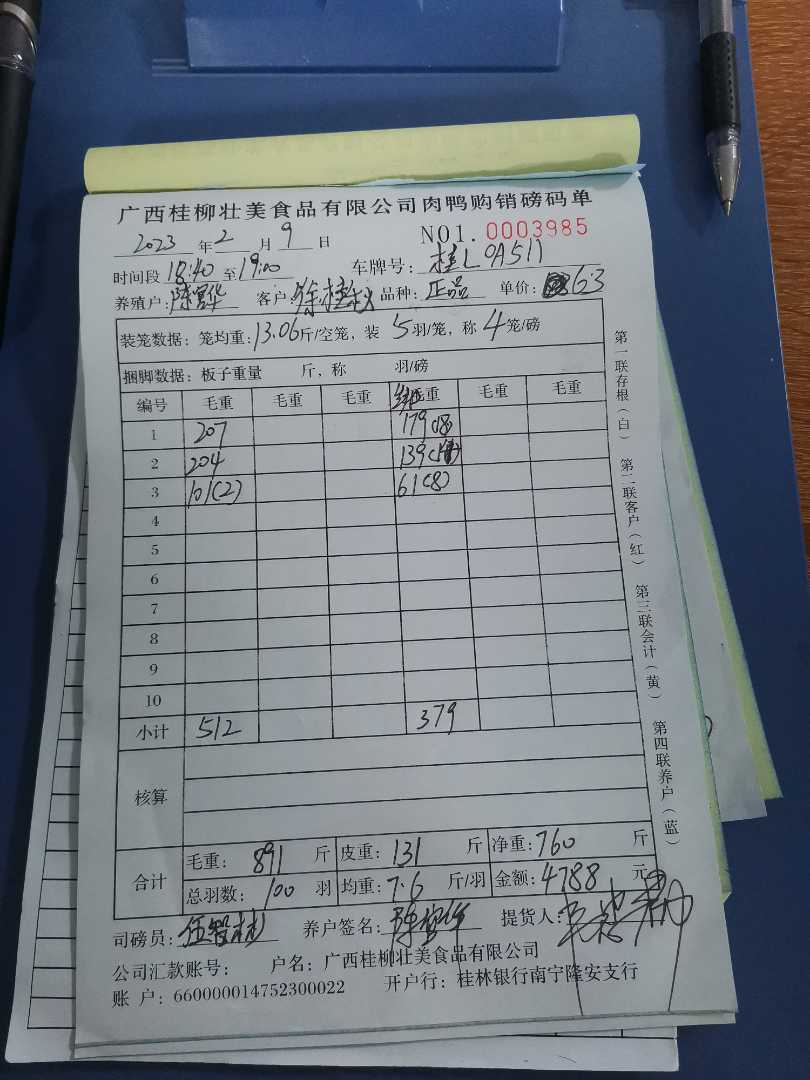 广西桂柳壮美食品有限公司肉鸭购销磅码单
2023 年 2 月 9 日 NO1. 0003985
时间段 18:40 至 19:00 车牌号: 桂L0A511
养殖户: 陈 华 客户: 徐桂 品种: 正品 单价: 6.3
装笼数据: 笼均重: 13.06 斤/空笼, 装 5 羽/笼, 称 4 笼/磅
捆脚数据: 板子重量 斤, 称 羽/磅
编号 毛重 毛重 毛重 毛重 毛重 毛重
1 207 179(18)
2 204 139
3 101(2) 61(8)
4
5
6
7
8
9
10
小计 512 379
核算
合计 毛重: 891 斤 皮重: 131 斤 净重: 760 斤
总羽数: 100 羽 均重: 7.6 斤/羽 金额: 4788 元
司磅员: 伍智 养户签名: 陈 华 提货人:
公司汇款账号: 户名: 广西桂柳壮美食品有限公司
账 户: 660000014752300022 开户行: 桂林银行南宁隆安支行
第一联存根(白) 第二联客户(红) 第三联会计(黄) 第四联养户(蓝)